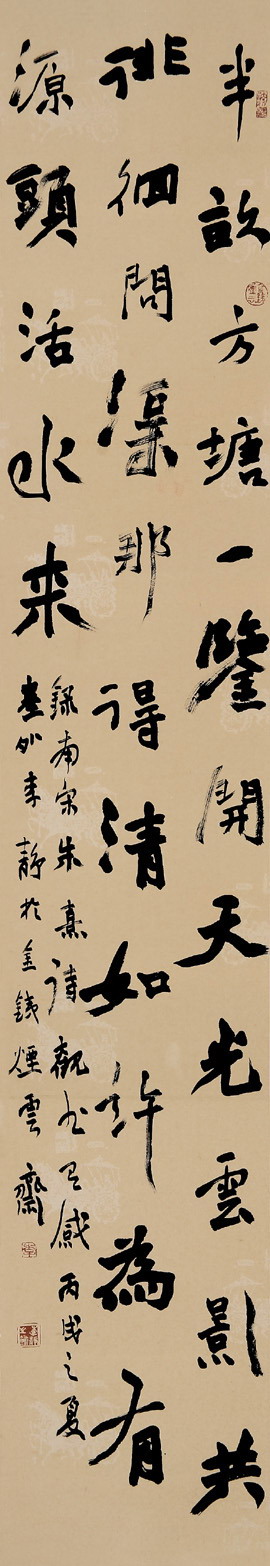 半畝方塘一鑒開天光雲影共
徘徊問渠那得清如許為有
源頭活水来
錄南宋朱熹詩觀书有感丙戌之夏
李静於金錢煙雲齋